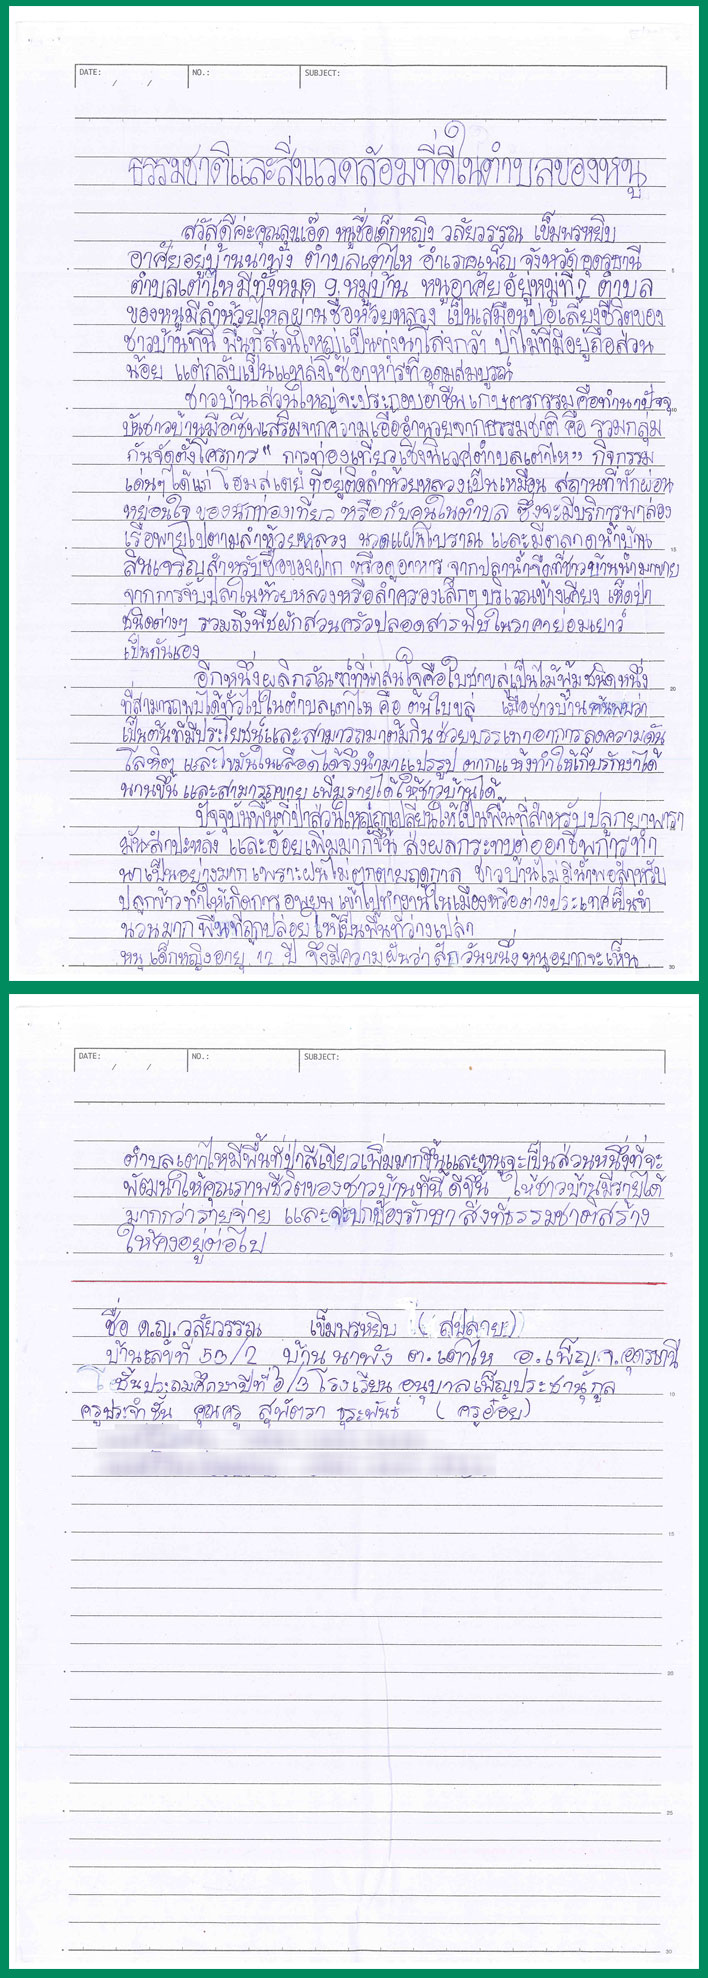 DATE: / / NO.: SUBJECT:
ธรรมชาติและสิ่งแวดล้อมที่ดีในตำบลของหนู
สวัสดีค่ะคุณลุงแอ๊ด หนูชื่อเด็กหญิง วลัยวรรณ เข็มพรหยิบ
อาศัยอยู่บ้านนาพัง ตำบลเตาไห อำเภอเพ็ญ จังหวัดอุดรธานี
ตำบลเตาไหมีทั้งหมด 9 หมู่บ้าน หนูอาศัยอยู่หมู่ที่ 7 ตำบล
ของหนูมีลำห้วยไหลผ่านชื่อห้วยหลวง เป็นเสมือนบ่อเลี้ยงชีวิตของ
ชาวบ้านที่นี่ พื้นที่ส่วนใหญ่เป็นทุ่งนาโล่งกว้า ป่าไม้ที่มีอยู่ถือส่วน
น้อย แต่กลับเป็นแหล่งโซ่อาหารที่อุดมสมบูรณ์
ชาวบ้านส่วนใหญ่จะประกอบอาชีพเกษตรกรรมคือทำนาปัจจุ
บันชาวบ้านมีอาชีพเสริมจากความเอื้ออำนวยจากธรรมชาติ คือ รวมกลุ่ม
กันจัดตั้งโครงการ" การท่องเที่ยวเชิงนิเวศตำบลเตาไห" กิจกรรม
เด่นๆ ได้แก่ โฮมสเตย์ ที่อยู่ติดลำห้วยหลวงเป็นเหมือน สถานที่พักผ่อน
หย่อนใจ ของนักท่องเที่ยว หรือกับคนในตำบล ซึ่งจะมีบริการพาล่อง
เรือพายไปตามลำห้วยหลวง นวดแผนโบราณ และมีตลาดน้ำบ้าน
สินเจริญสำหรับซื้อของฝาก หรือดูอาหาร จากปลาน้ำจืดที่ชาวบ้านนำมาขาย
จากการจับปลาในห้วยหลวงหรือลำคลองเล็กๆ บริเวณข้างเคียง เห็ดป่า
ชนิดต่างๆ รวมถึงพืชผักสวนครัวปลอดสารพิษในราคาย่อมเยาว์
เป็นกันเอง
อีกหนึ่งผลิตภัณฑ์ที่น่าสนใจคือใบชาขลู่เป็นไม้พุ่มชนิดหนึ่ง
ที่สามารถพบได้ทั่วไปในตำบลเตาไห คือ ต้นใบขลู่ เมื่อชาวบ้านค้นพบว่า
เป็นต้นที่มีประโยชน์และสามารถมาต้มกินช่วยบรรเทาอาการลดความดัน
โลหิต และไขมันในเลือดได้จึงนำมาแปรรูป ตากแห้งทำให้เก็บรักษาได้
นานขึ้น และสามารถขาย เพิ่มรายได้ให้ชาวบ้านได้
ปัจจุบันพื้นที่ป่าส่วนใหญ่ถูกเปลี่ยนให้เป็นพื้นที่สำหรับปลูกยางพารา
มันสำปะหลัง และอ้อยเพิ่มมากขึ้น ส่งผลกระทบต่ออาชีพการทำ
นาเป็นอย่างมาก เพราะฝนไม่ตกตามฤดูกาล ชาวบ้านไม่มีน้ำพอสำหรับ
ปลูกข้าวทำให้เกิดการอพยพ เข้าไปทำงานในเมืองหรือต่างประเทศเป็นจำ
นวนมาก พื้นที่ถูกปล่อยให้เป็นพื้นที่ว่างเปล่า
หนู เด็กหญิงอายุ 12 ปี จึงมีความฝันว่า สักวันหนึ่งหนูอยากจะเห็น
DATE: / / NO.: SUBJECT:
ตำบลเตาไหมีพื้นที่ป่าสีเขียวเพิ่มมากขึ้นและหนูจะเป็นส่วนหนึ่งที่จะ
พัฒนาให้คุณภาพชีวิตของชาวบ้านที่นี่ ดีขึ้น ให้ชาวบ้านมีรายได้
มากกว่ารายจ่าย และจะปกป้องรักษา สิ่งที่ธรรมชาติสร้าง
ให้คงอยู่ต่อไป
ชื่อ ด.ญ. วลัยวรรณ เข็มพรหยิบ ( สไปลาย )
บ้านเลขที่ 53/2 บ้านนาพัง ต.เตาไห อ.เพ็ญ จ.อุดรธานี
ชั้นประถมศึกษาปีที่ 6/3 โรงเรียน อนุบาลเพ็ญประชานุกูล
ครูประจำชั้น คุณครู สุพัตรา ธุระพันธ์ ( ครูอ้อย )